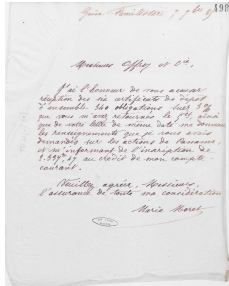 498
Guise Familistère 7 9bre 89
Messieurs Offroy et Cie,
J'ai l'honneur de vous accuser
réception des six certificats de dépôt
d'ensemble 340 obligations Suez 3%
que vous m'avez retournés le 5 ct, ainsi
que de votre lettre de même date me donnant
les renseignements que je vous avais
demandés sur les actions de Panama
et m'informant de l'inscription de
au crédit de mon compte-
courant.
Veuillez agréer, Messieurs,
l'assurance de toute ma considération
Marie Moret